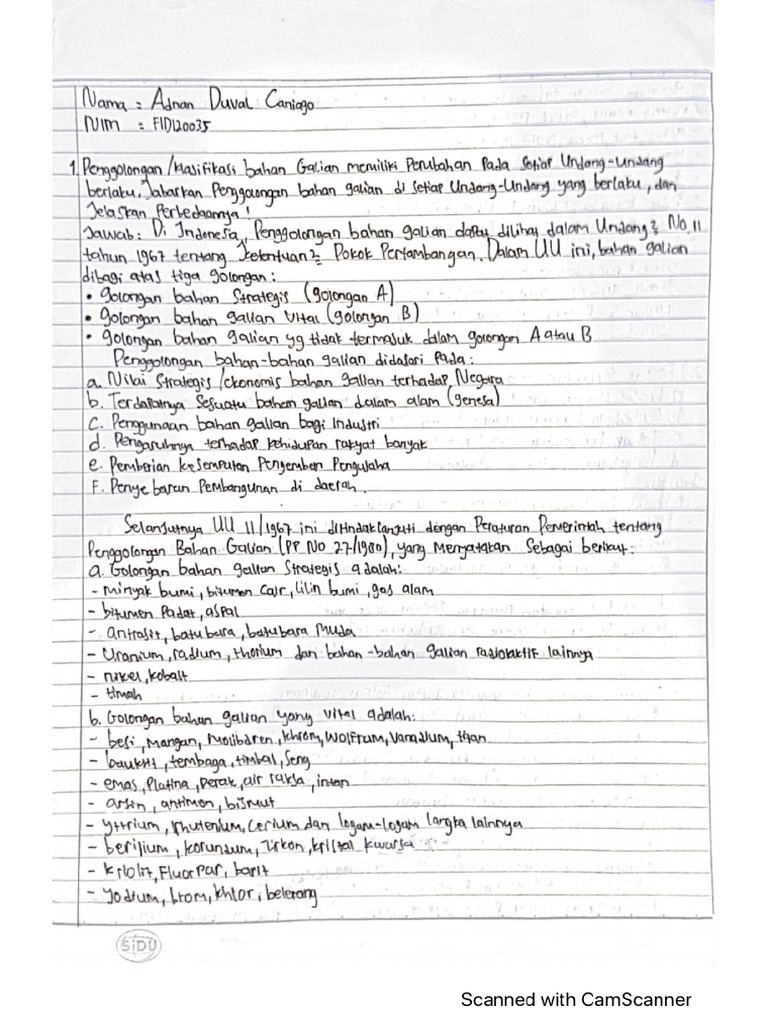 Nama : Adnan Duval Caniago
NIM : F1D120035
1. Penggolongan /klasifikasi bahan Galian memiliki Perubahan Pada Setiap Undang-Undang
berlaku, Jabarkan Penggolongan bahan galian di setiap Undang-Undang yang berlaku, dan
Jelaskan Perbedaannya !
Jawab : Di Indonesia, Penggolongan bahan galian dapat dilihat dalam Undang2 No. 11
tahun 1967 tentang ketentuan2 Pokok Pertambangan. Dalam UU ini, bahan galian
dibagi atas tiga golongan :
• golongan bahan Strategis (golongan A)
• golongan bahan galian Vital (golongan B)
• golongan bahan galian yg tidak termasuk dalam golongan A atau B
Penggolongan bahan-bahan galian didasari Pada :
a. Nilai Strategis /ekonomis bahan galian terhadap Negara
b. Terdapatnya Sesuatu bahan galian dalam alam (genesa)
c. Penggunaan bahan galian bagi Industri
d. Pengaruhnya terhadap kehidupan rakyat banyak
e. Pemberian kesempatan Pengemban Pengusaha
F. Penyebaran Pembangunan di daerah.
Selanjutnya UU 11/1967 ini ditindaklanjuti dengan Peraturan Pemerintah tentang
Penggolongan Bahan Galian (PP No 27/1980), yang Menyatakan Sebagai berikut :
a. Golongan bahan galian Strategis adalah:
- minyak bumi, bitumen cair, lilin bumi, gas alam
- bitumen Padat, aspal
- antrasit, batubara, batubara muda
- Uranium, radium, thorium dan bahan-bahan galian radioaktif lainnya
- nikel, kobalt
- timah
b. Golongan bahan galian yang vital adalah:
- besi, mangan, molibden, khrom, wolfram, vanadium, titan
- bauksit, tembaga, timbal, seng
- emas, Platina, perak, air raksa, intan
- arsin, antimon, bismut
- yttrium, rhutenium, cerium dan logam-logam langka lainnya
- berilium, korundum, zirkon, kristal kwarsa
- kriolit, Fluorpar, barit
- yodium, brom, khlor, belerang
SiDU
Scanned with CamScanner